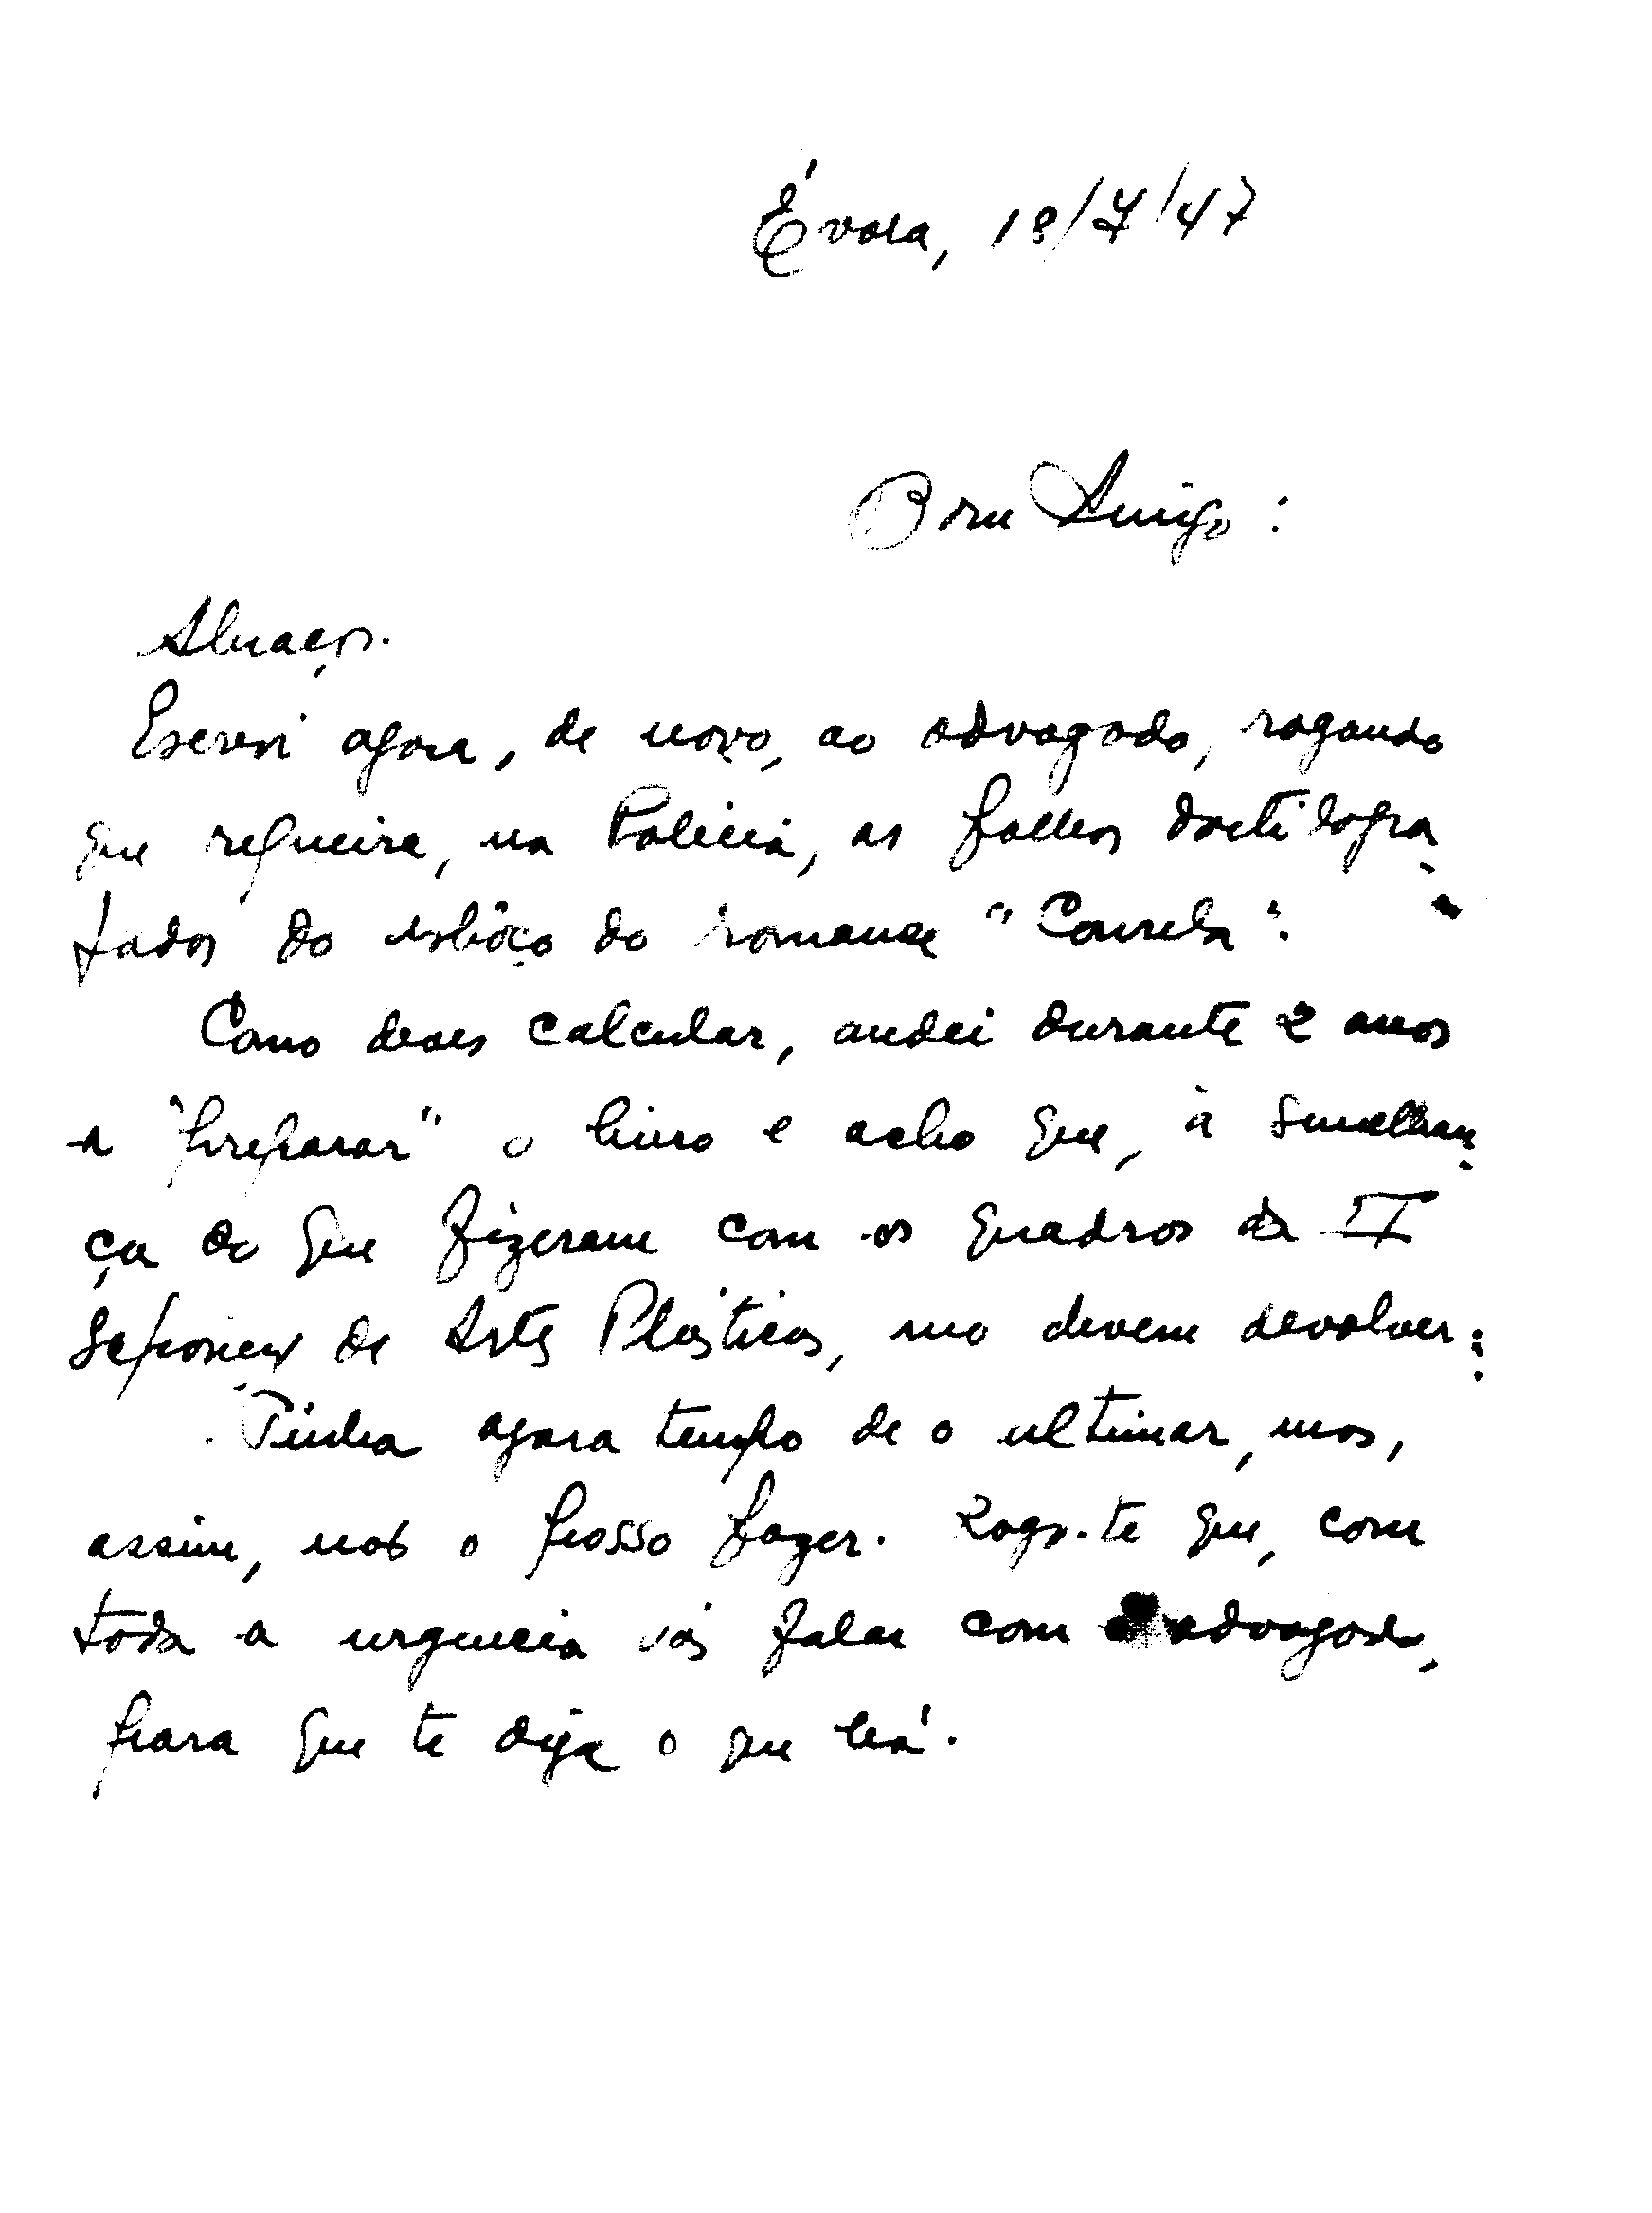 Évora, 18/7/47
Bom Amigo:
Abraços.
Escrevi agora, de novo, ao advogado, rogando
que requeira, na Policia, as folhas dactilogra-
fadas do esbôço do romance "Courela".
Como deves calcular, andei durante 2 anos
a "preparar" o livro e acho que, à semelhan-
ça do que fizeram com os quadros da II
de Artes Plásticas, mo devem devolver.
Tinha agora tempo de o ultimar, mas,
assim, não o posso fazer. Rogo-te que, com
toda a urgencia vás falar com o advogado,
para que te diga o que há.